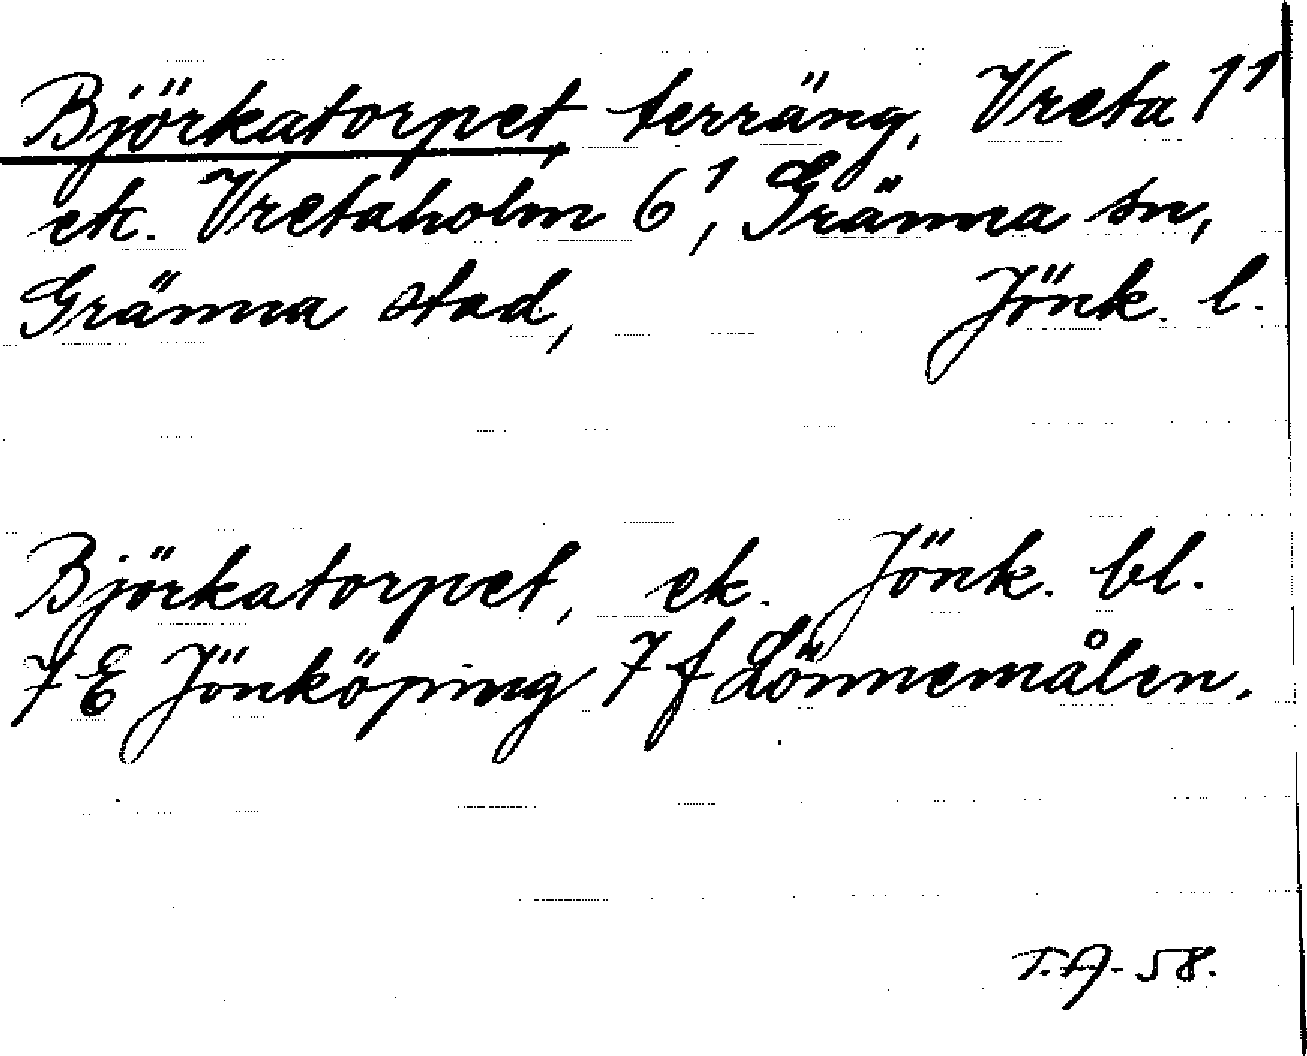 Björkatorpet, terräng, Vreta 1¹
ek. Vretaholm 6¹, Gränna sn,
Gränna stad, Jönk. l.
Björkatorpet, ek. Jönk. bl.
7 E Jönköping 7 f Lönnemålen.
T.A. 58.